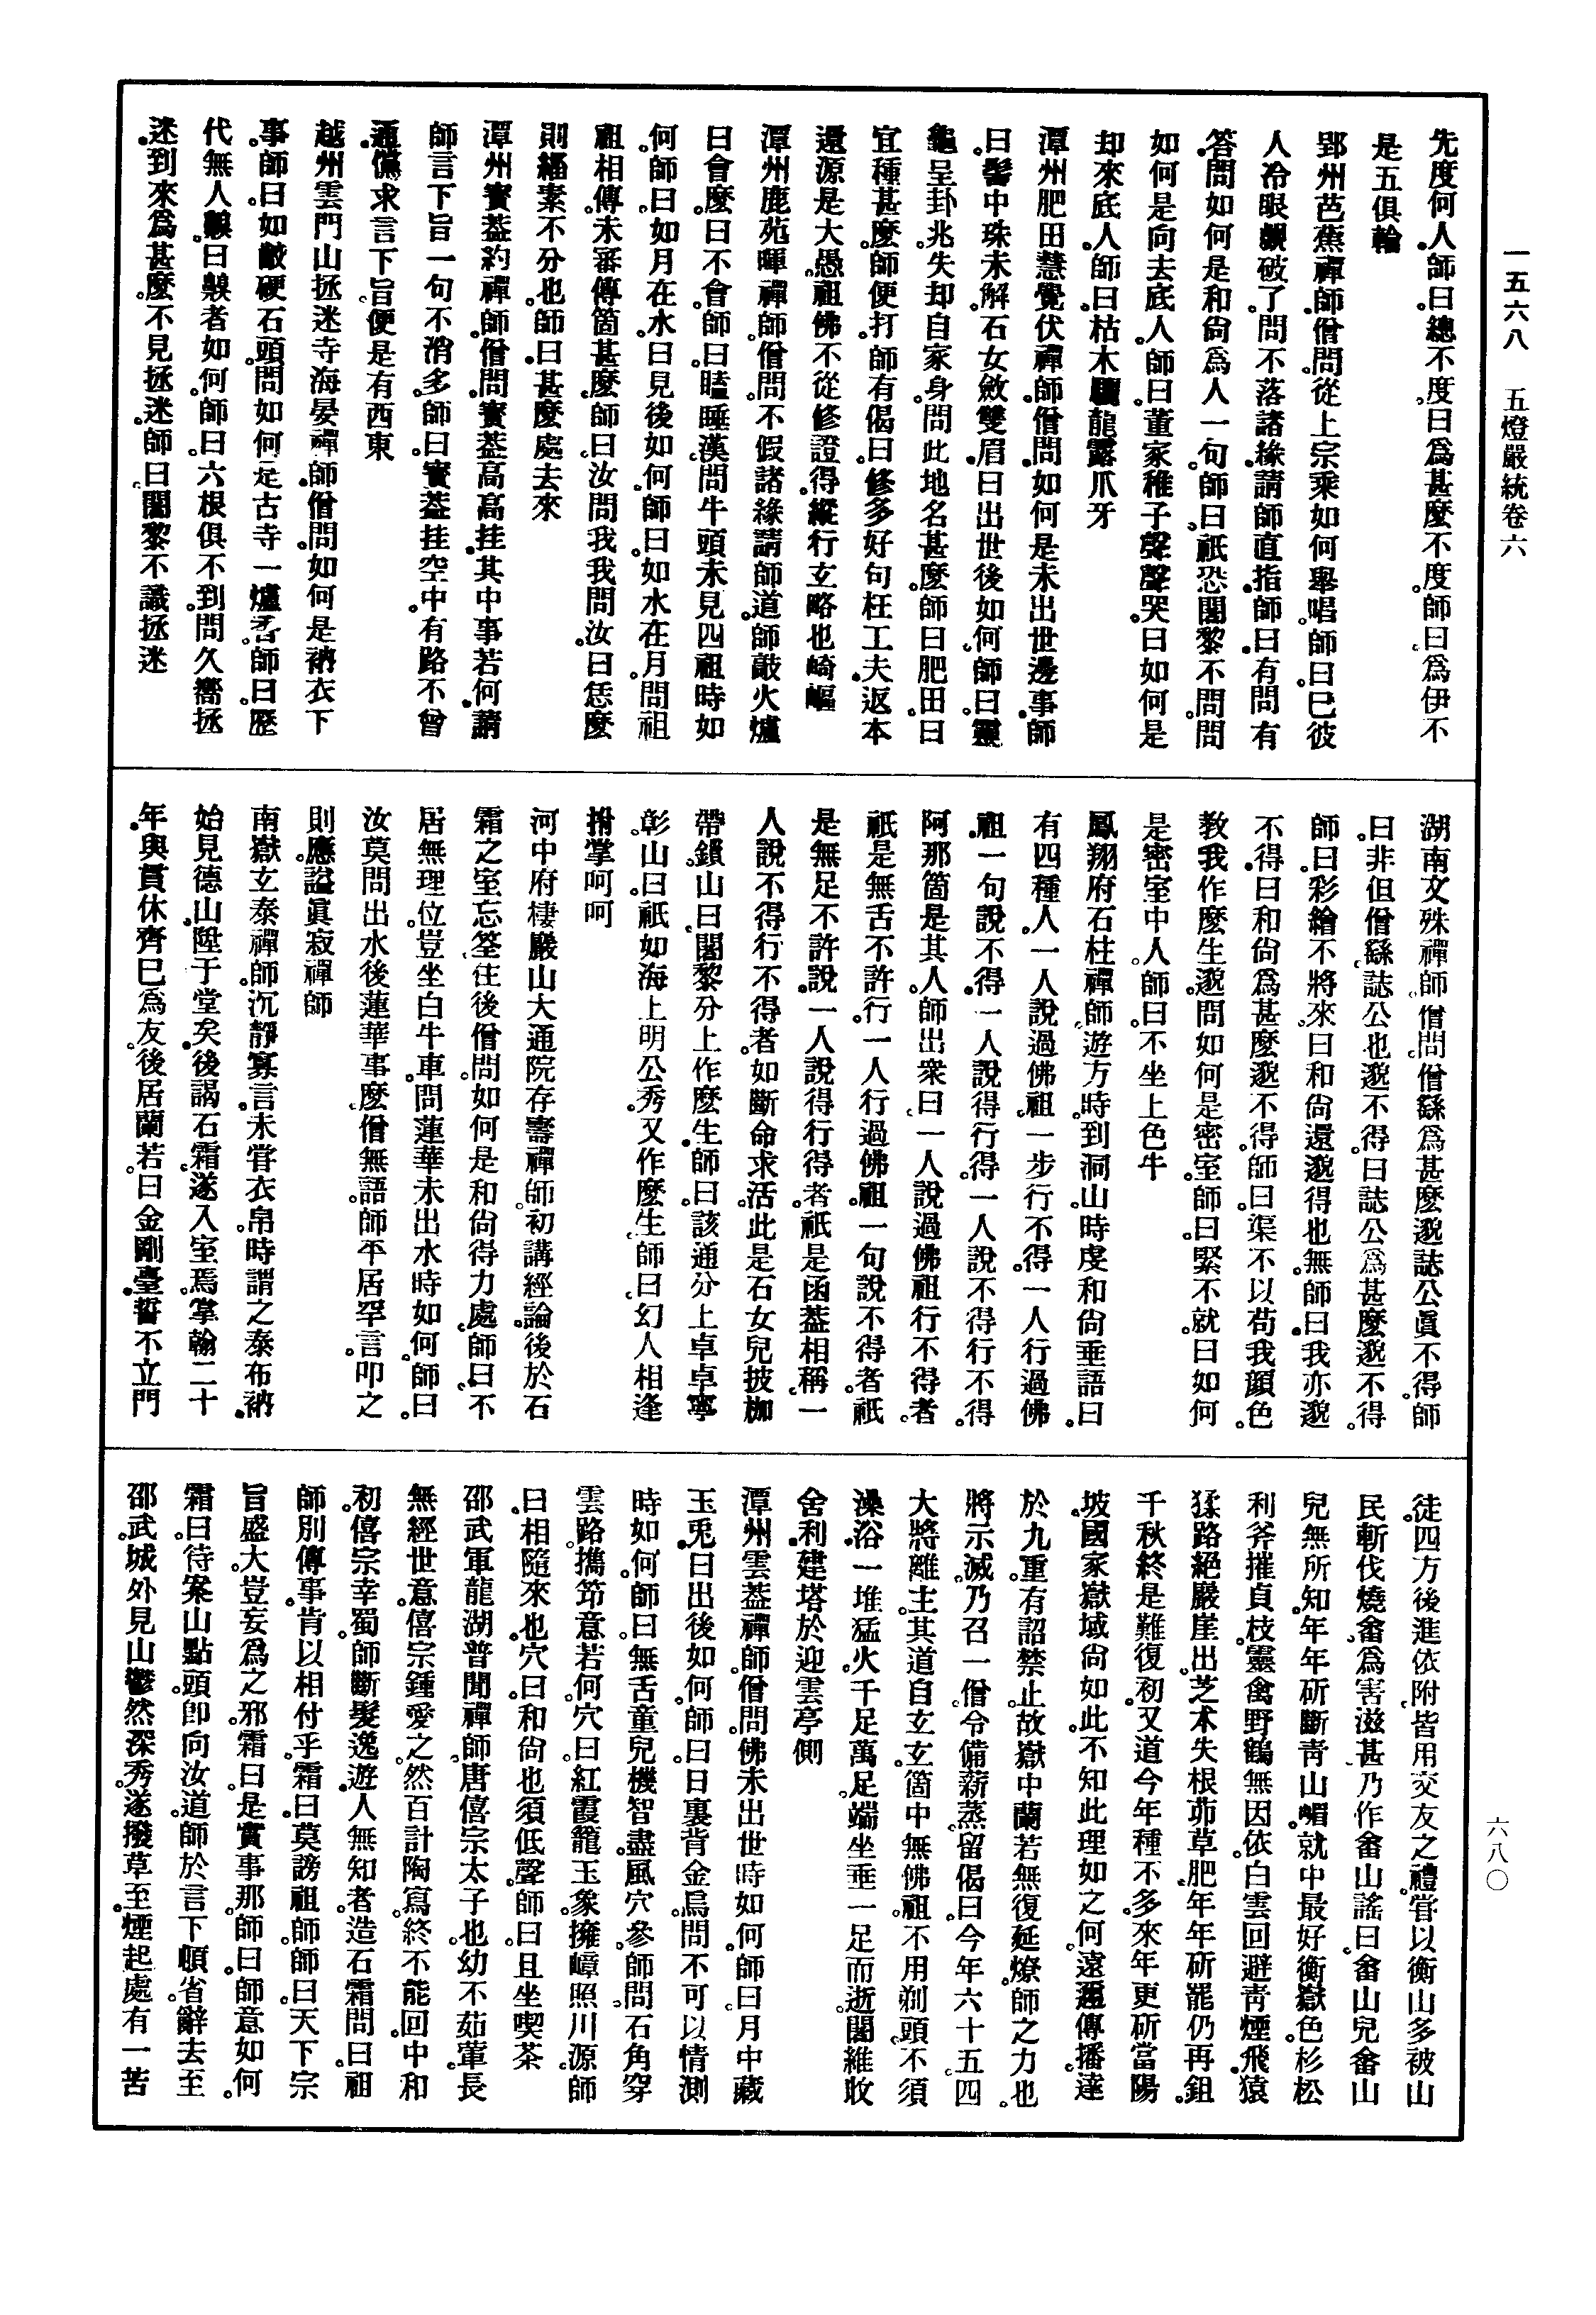 一五六八　五燈嚴統卷六
先度何人。師曰。總不度。曰爲甚麼不度。師曰。爲伊不
是五俱輪
郢州芭蕉禪師。僧問。從上宗乘如何舉唱。師曰。巳彼
人冷眼覷破了。問不落諸緣。請師直指。師曰。有問有
答。問如何是和尙爲人一句。師曰。祇恐闍黎不問。問
如何是向去底人。師曰。董家稚子聲聲哭。曰如何是
却來底人。師曰。枯木驪龍露爪牙
潭州肥田慧覺伏禪師。僧問。如何是未出世邊事。師
曰。髻中珠未解。石女斂雙眉。曰出世後如何。師曰。靈
龜呈卦兆。失却自家身。問此地名甚麼。師曰肥田。曰
宜種甚麼。師便打。師有偈曰。修多好句枉工夫。返本
還源是大愚。祖佛不從修證得。縱行玄路也崎嶇
潭州鹿苑暉禪師。僧問。不假諸緣。請師道。師敲火爐
曰會麼。曰不會。師曰。瞌睡漢。問牛頭未見四祖時如
何。師曰。如月在水。曰見後如何。師曰。如水在月。問祖
祖相傳。未審傳箇甚麼。師曰。汝問我。我問汝。曰恁麼
則緇素不分也。師曰。甚麼處去來
潭州寳葢約禪師。僧問。寳葢高高挂。其中事若何。請
師言下旨。一句不消多。師曰。寳葢挂空中。有路不曾
通。儻求言下旨。便是有西東
越州雲門山拯迷寺海晏禪師。僧問。如何是衲衣下
事。師曰。如齩硬石頭。問如何是古寺一爐香。師曰。歷
代無人齅。曰齅者如何。師曰。六根俱不到。問久嚮拯
迷。到來爲甚麼。不見拯迷。師曰。闍黎不識拯迷
湖南文殊禪師。僧問。僧繇爲甚麼邈誌公眞不得。師
曰。非但僧繇。誌公也邈不得。曰誌公爲甚麼邈不得。
師曰。彩繪不將來。曰和尙還邈得也無。師曰。我亦邈
不得。曰和尙爲甚麼邈不得。師曰。渠不以苟我顔色。
教我作麼生邈。問如何是密室。師曰。緊不就。曰如何
是密室中人。師曰。不坐上色牛
鳳翔府石柱禪師。遊方時。到洞山。時虔和尙垂語曰。
有四種人。一人說過佛祖。一步行不得。一人行過佛
祖。一句說不得。一人說得行得。一人說不得行不得。
阿那箇是其人。師出衆曰。一人說過佛祖行不得者。
祇是無舌不許行。一人行過佛祖。一句說不得者。祇
是無足不許說。一人說得行得者。祇是函葢相稱。一
人說不得行不得者。如斷命求活。此是石女兒披枷
帶鎖。山曰。闍黎分上作麼生。師曰。該通分上卓卓寧
彰。山曰。祇如海上明公秀又作麼生。師曰。幻人相逢
拊掌呵呵
河中府棲巖山大通院存壽禪師。初講經論。後於石
霜之室忘筌。住後僧問。如何是和尙得力處。師曰。不
居無理位。豈坐白牛車。問蓮華未出水時如何。師曰。
汝莫問出水後蓮華事麼。僧無語。師平居罕言。叩之
則應。謚眞寂禪師
南嶽玄泰禪師。沉靜寡言。未甞衣帛。時謂之泰布衲。
始見德山。陞于堂矣。後謁石霜。遂入室焉。掌翰二十
年。與貫休齊巳爲友。後居蘭若。曰金剛臺。誓不立門
徒。四方後進依附。皆用交友之禮。甞以衡山多被山
民斬伐燒畬。爲害滋甚。乃作畬山謠曰。畬山兒畬山
兒無所知。年年斫斷靑山嵋。就中最好衡嶽色。杉松
利斧摧貞枝。靈禽野鶴無因依。白雲回避靑煙飛。猿
猱路絕巖崖出。芝术失根茆草肥。年年斫罷仍再鉏。
千秋終是難復初。又道今年種不多。來年更斫當陽
坡。國家嶽域尙如此。不知此理如之何。遠邇傳播。達
於九重。有詔禁止。故嶽中蘭若無復延燎。師之力也。
將示滅。乃召一僧。令備薪蒸。留偈曰。今年六十五。四
大將離主。其道自玄玄。箇中無佛祖。不用剃頭。不須
澡浴。一堆猛火。千足萬足。端坐垂一足而逝。闍維收
舍利。建塔於迎雲亭側
潭州雲葢禪師。僧問。佛未出世時如何。師曰。月中藏
玉兎。曰出後如何。師曰。日裏背金烏。問不可以情測
時如何。師曰。無舌童兒機智盡。風穴參師問。石角穿
雲路。攜笻意若何。穴曰。紅霞籠玉象。擁嶂照川源。師
曰。相隨來也。穴曰。和尙也須低聲。師曰。且坐喫茶
邵武軍龍湖普聞禪師。唐僖宗太子也。幼不茹葷。長
無經世意。僖宗鍾愛之。然百計陶寫。終不能回。中和
初。僖宗幸蜀。師斷髮逸遊。人無知者。造石霜問曰。祖
師別傳事。肯以相付乎。霜曰。莫謗祖師。師曰。天下宗
旨盛大。豈妄爲之邪。霜曰。是實事那。師曰。師意如何。
霜曰。待案山點頭。卽向汝道。師於言下頓省。辭去至
邵武。城外見山鬱然深秀。遂撥草至。煙起處有一苦
六八〇